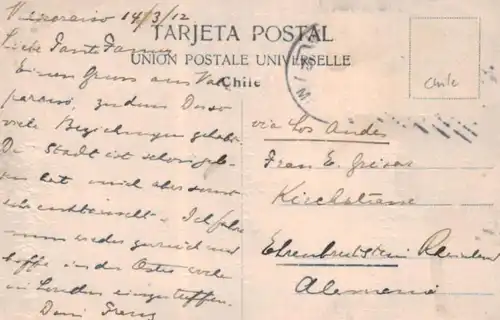 Valparaiso 14/3/12
Liebe Tante Fanny
TARJETA POSTAL
UNION POSTALE UNIVERSELLE
Chile
Chile
Einen Gruss aus Val-
paraiso, zu dem Du so
viele Beziehungen gehabt.
Die Stadt ist schön gele-
gen hat mich aber sonst
enttäuscht. Ich fahre
nun wieder zurück und
hoffe in der Oster woche
in London einzutreffen.
Dein Franz
via Los Andes
Frau E.
Kirchstrasse
Ehrenbreitstein Rheinland
Alemania